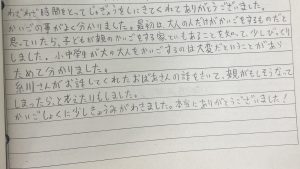 わざわざ時間をとってじゅぎょうをしにきてくれてありがとうございました。
かいごの事がよく分かりました。最初は、大人の人だけがかいごをするものだと
思っていたら、子どもが親のかいごをする家でもあることを知って、少しびっくり
しました。小中学生が大々大人をかいごするのは大変だということがあら
ためて分かりました。
糸川さんがお話してくれたおばあさんの話をきいて、親がもしそうなって
しまったら、と考えたりもしました。
かいごしょくに少しきょうみがわきました。本当にありがとうございました!